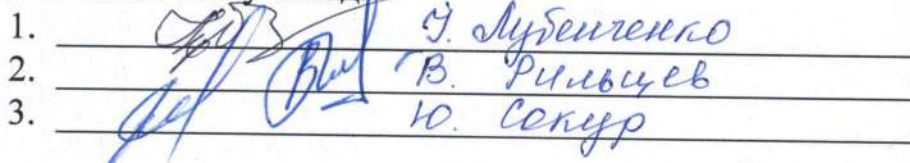 1. І. Лубенченко
2. В. Рильцев
3. Ю. Сокур